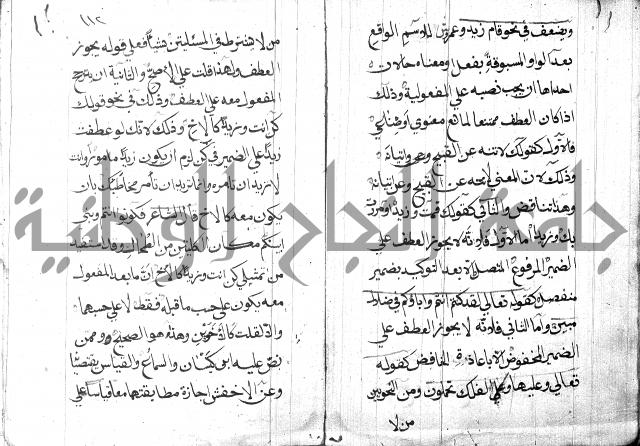 ويضعف في نحو قام زيد وعمرو للاسم الواقع
بعد الواو المسبوقة بفعل ومعناه حالات
احداها ان يجب نصبه على المفعولية وذلك
اذا كان العطف ممتنعا لمانع معنوي او صناعي
فالاول كقولك لا تنه عن القبيح وإتيانه
وذلك لان المعنى لا تنه عن القبيح وعن إتيانه
وهذا تناقض والثاني كقولك قمت وزيدا ومررت
بك وزيدا اما الاول فلانه لا يجوز العطف على
الضمير المرفوع المتصل الا بعد التوكيد بضمير
منفصل كقوله تعالى لقد كنتم انتم واباؤكم في ضلال
مبين واما الثاني فلانه لا يجوز العطف على
الضمير المخفوض الا باعادة الخافض كقوله
تعالى وعليها وعلى الفلك تحملون ومن النحويين
من لا
١١٢
من لا يشترط في المسئلتين شيئا فعلى قوله يجوز
العطف ولهذا قلت على الاصح والثانية ان يترجح
المفعول معه على العطف وذلك في نحو قولك
كن انت وزيدا كالاخ وذلك لانك لو عطفت
زيدا على الضمير في كن لزم ان يكون زيد مامورا وانت
لا تريد ان تأمره وانما تريد ان تأمر مخاطبك بان
يكون معه كالاخ قال الشاعر فكونوا انتم وبني
ابيكم مكان الكليتين من الطحال وقد استفيد
من تمثيلي كن انت وزيدا كالاخ ان ما بعد المفعول
معه يكون على حسب ما قبله فقط لا على حسبهما
والا لقلت كالاخوين وهذا هو الصحيح وممن
نص عليه ابن كيسان والسماع والقياس يقتضيانه
وعن الاخفش اجازة مطابقتهما قياسا على
جامعة النجاح الوطنية